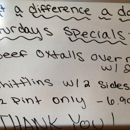 a difference a d
urdays specials
eef Oxtails over r
w/2 S
hitlins w/2 sides
pint only - 6.9
THANK YOU!